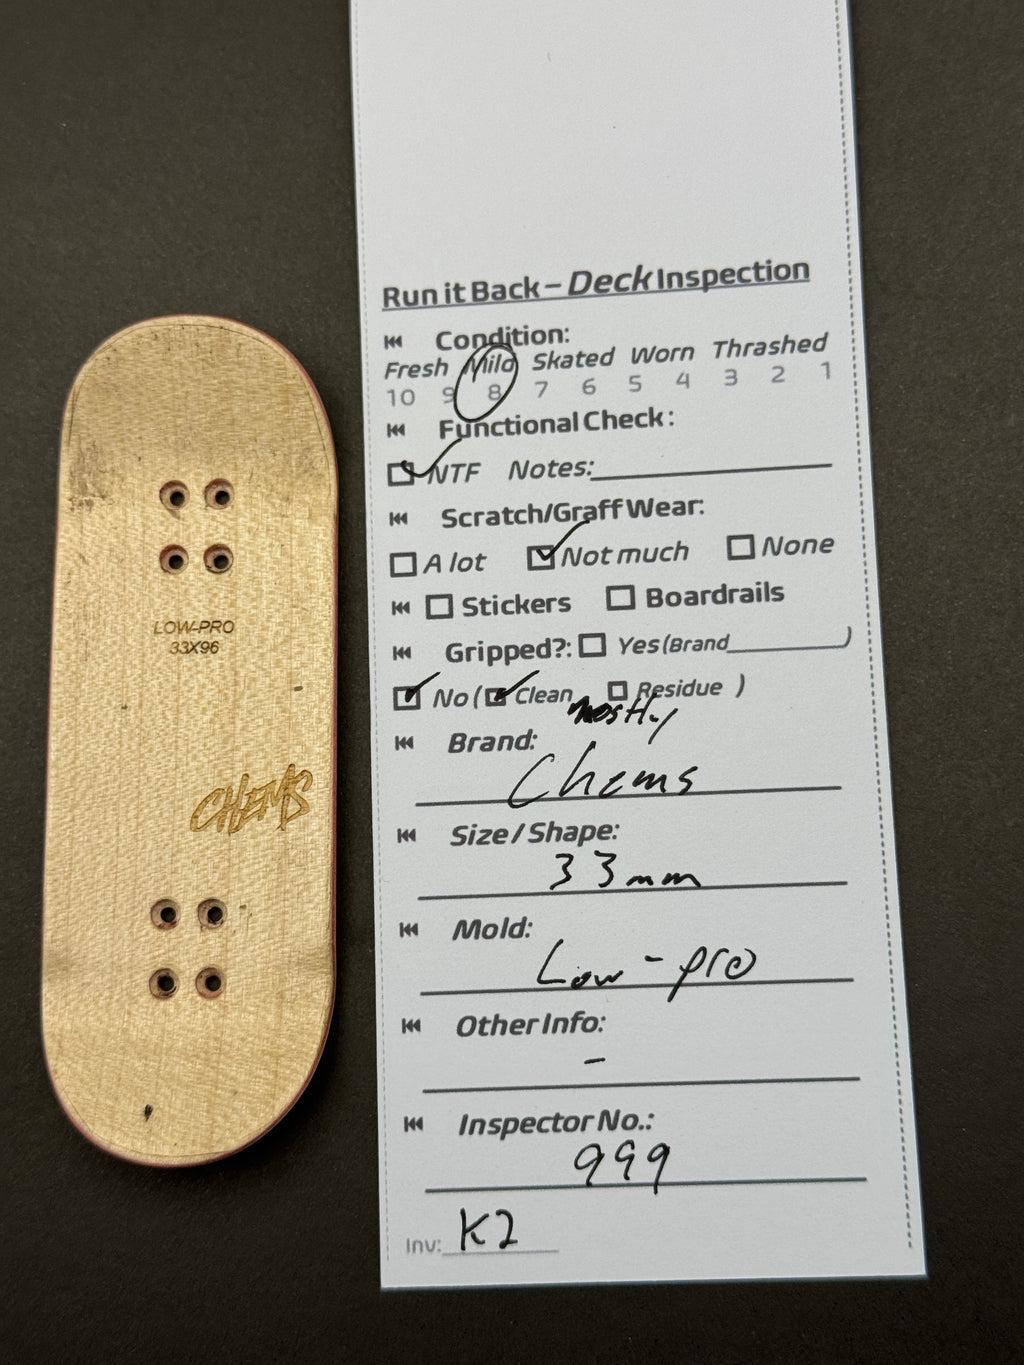 LOW-PRO
33X96
CHEMS
Run it Back – Deck Inspection
Condition:
Fresh Mild Skated Worn Thrashed
10 9 8 7 6 5 4 3 2 1
Functional Check:
NTF Notes:
Scratch/Graff Wear:
A lot Not much None
Stickers Boardrails
Gripped?: Yes (Brand )
No ( Clean Residue )
mostly
Brand:
Chems
Size / Shape:
33mm
Mold:
Low-pro
Other Info:
–
Inspector No.:
999
Inv: K2